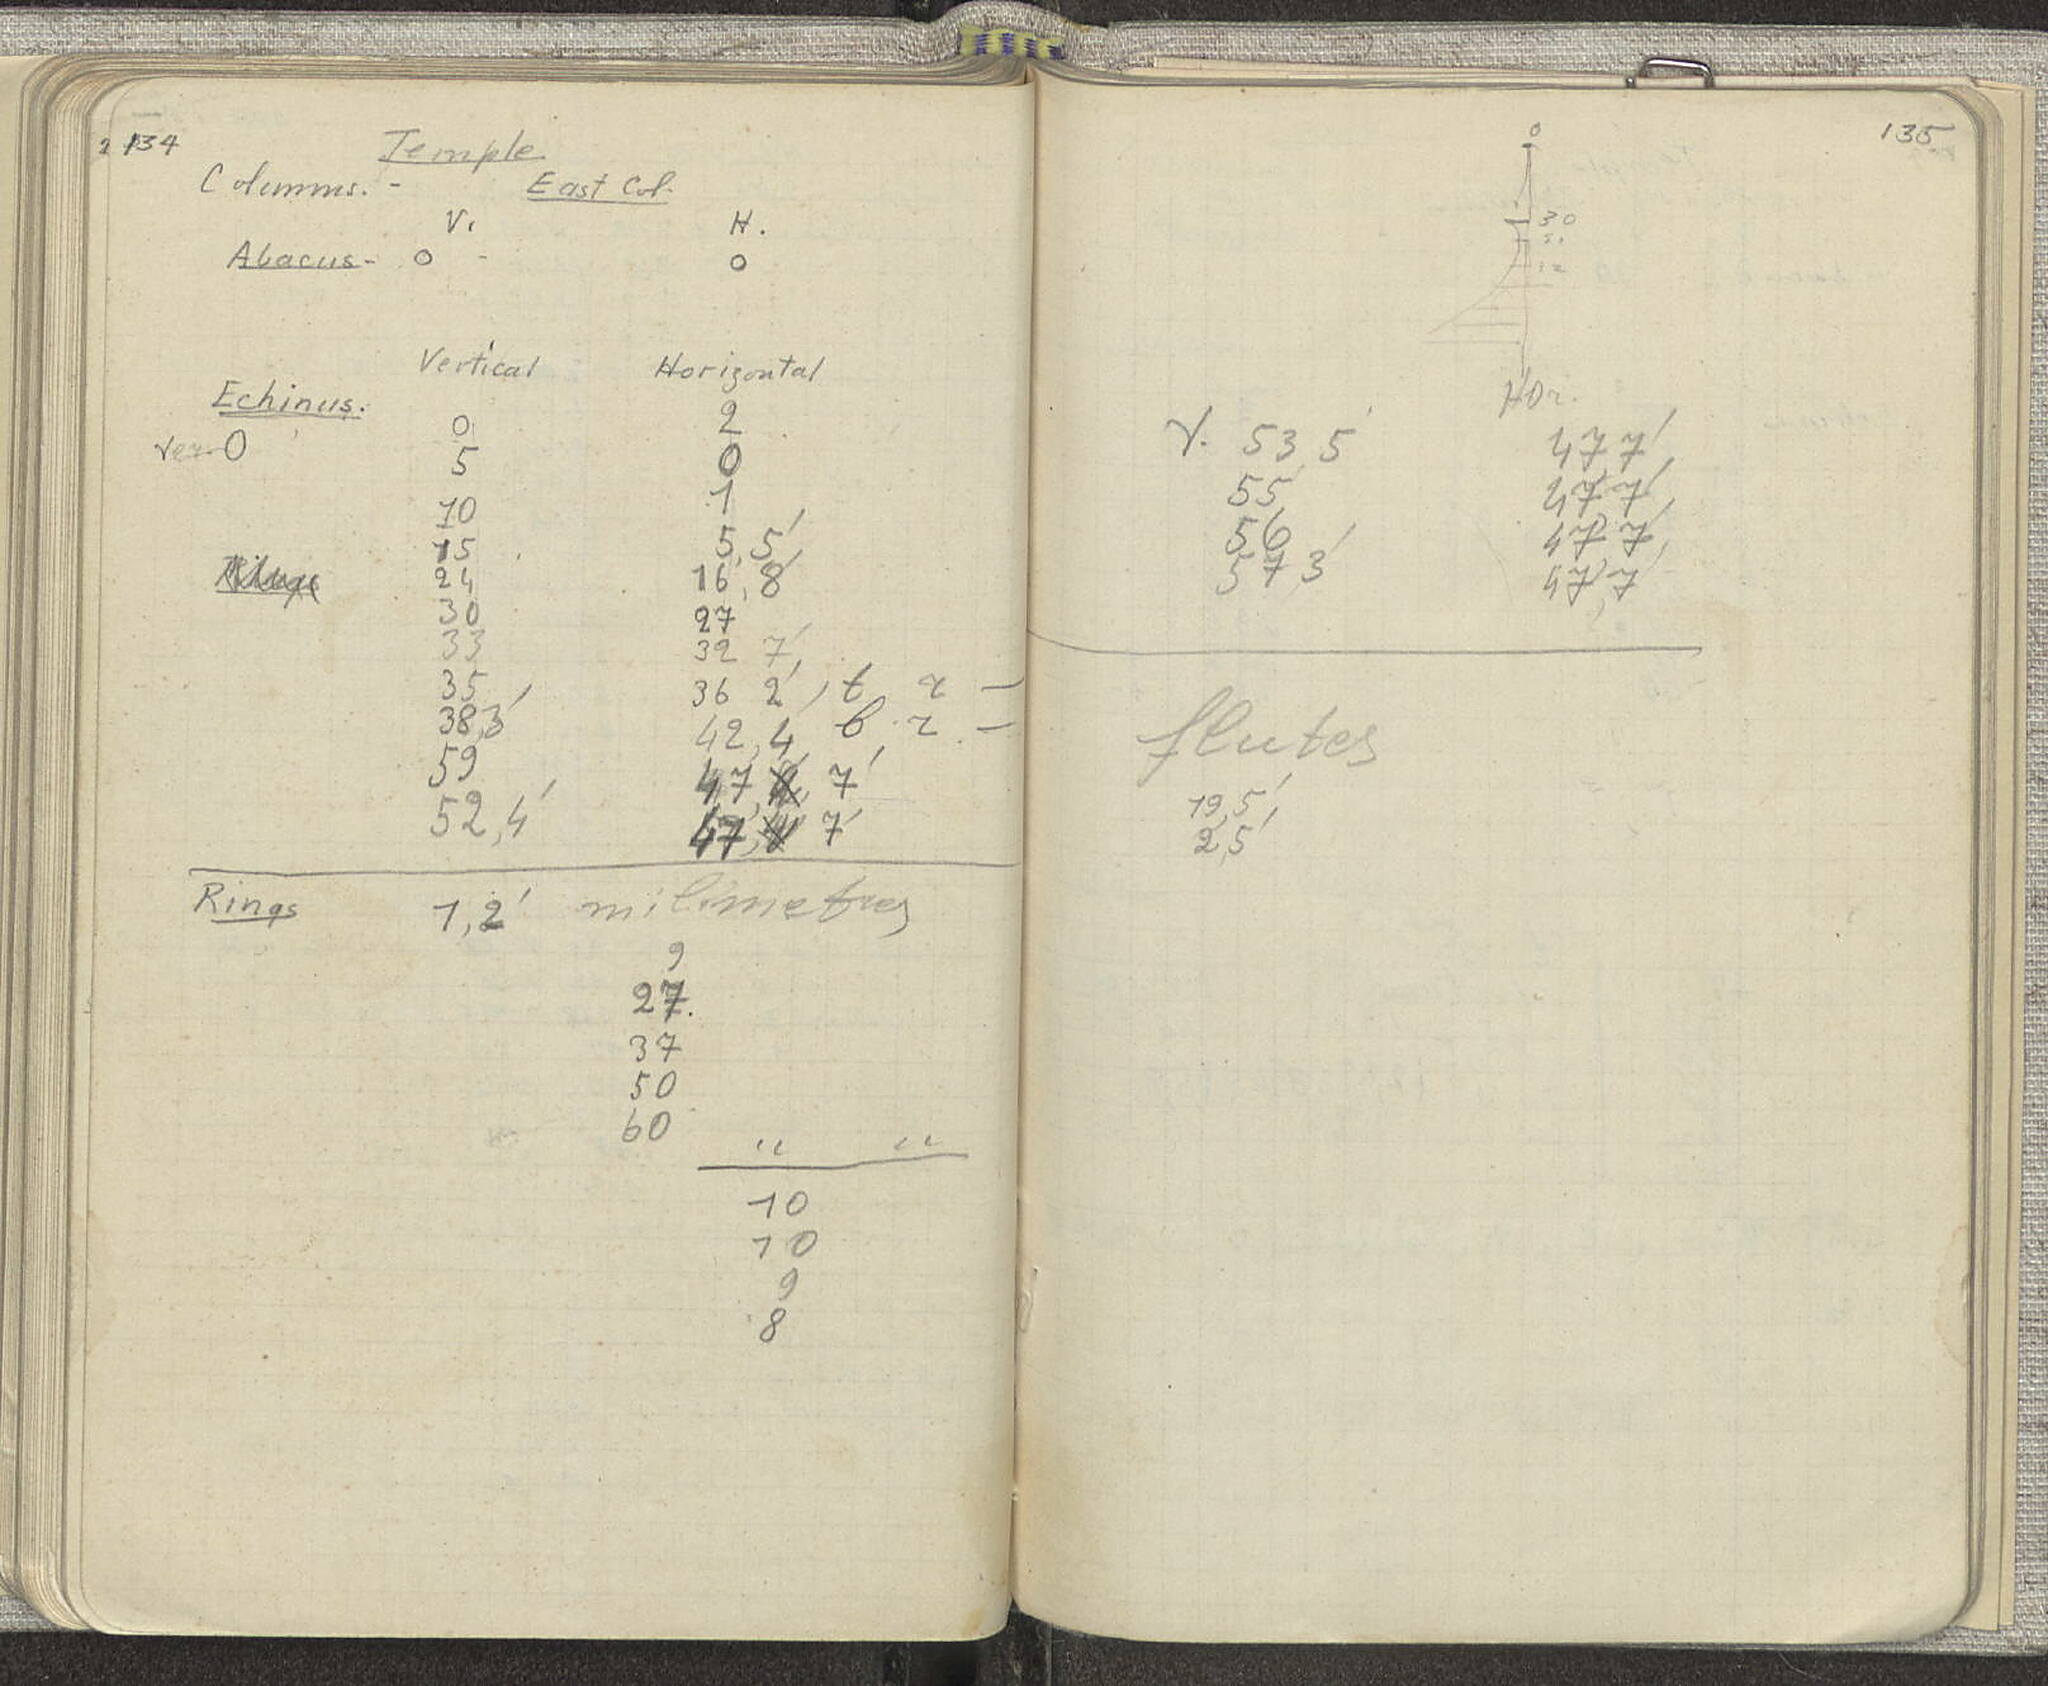 134
Temple
Columns. - East Col.
V. H.
Abacus - 0 - 0
Vertical Horizontal
Echinus.
0 2
Ver. 0
5 0
10 1
15 5,5'
24 16,8'
30 27
33 32 7'
35 36 2', t r -
38,3' 42,4 b. r. -
59 47, 7'
52,4' 47, 7'
Rings 1,2' milimetres
9
27.
37
50
60
" "
10
10
9
8
135
0
30
12
Hor.
V. 53,5' 47 7'
55 47 7'
56 47 7'
57,3' 47,7'
flutes
19,5'
2,5'